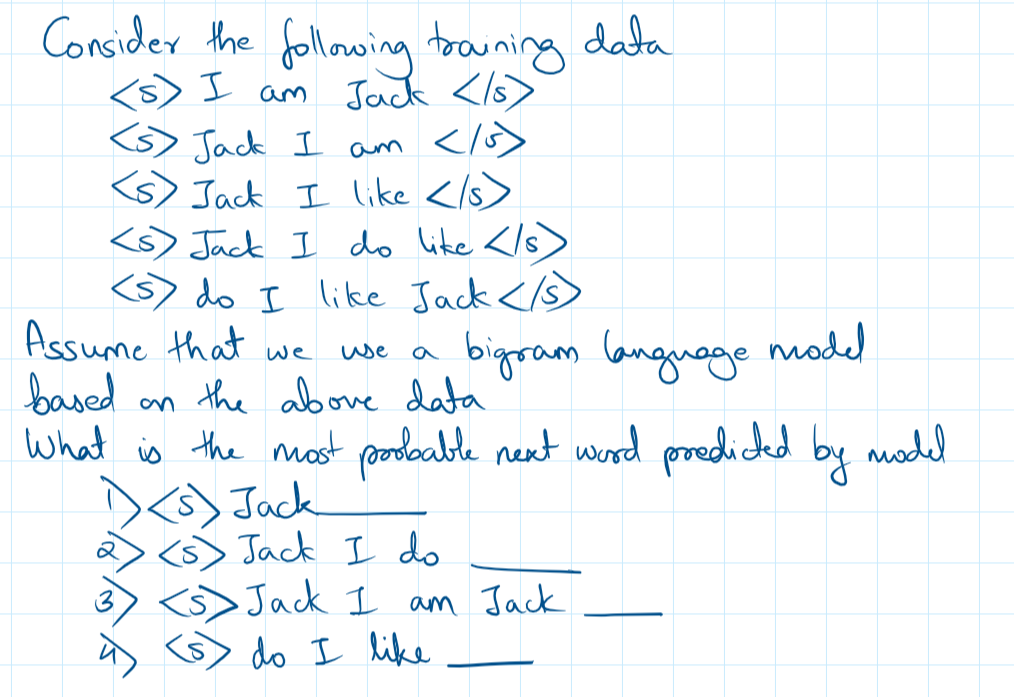 Consider the following training data
<s> I am Jack </s>
<s> Jack I am </s>
<s> Jack I like </s>
<s> Jack I do like </s>
<s> do I like Jack </s>
Assume that we use a bigram language model
based on the above data
What is the most probable next word predicted by model
1) <s> Jack ____
2) <s> Jack I do ____
3) <s> Jack I am Jack ____
4) <s> do I like ____